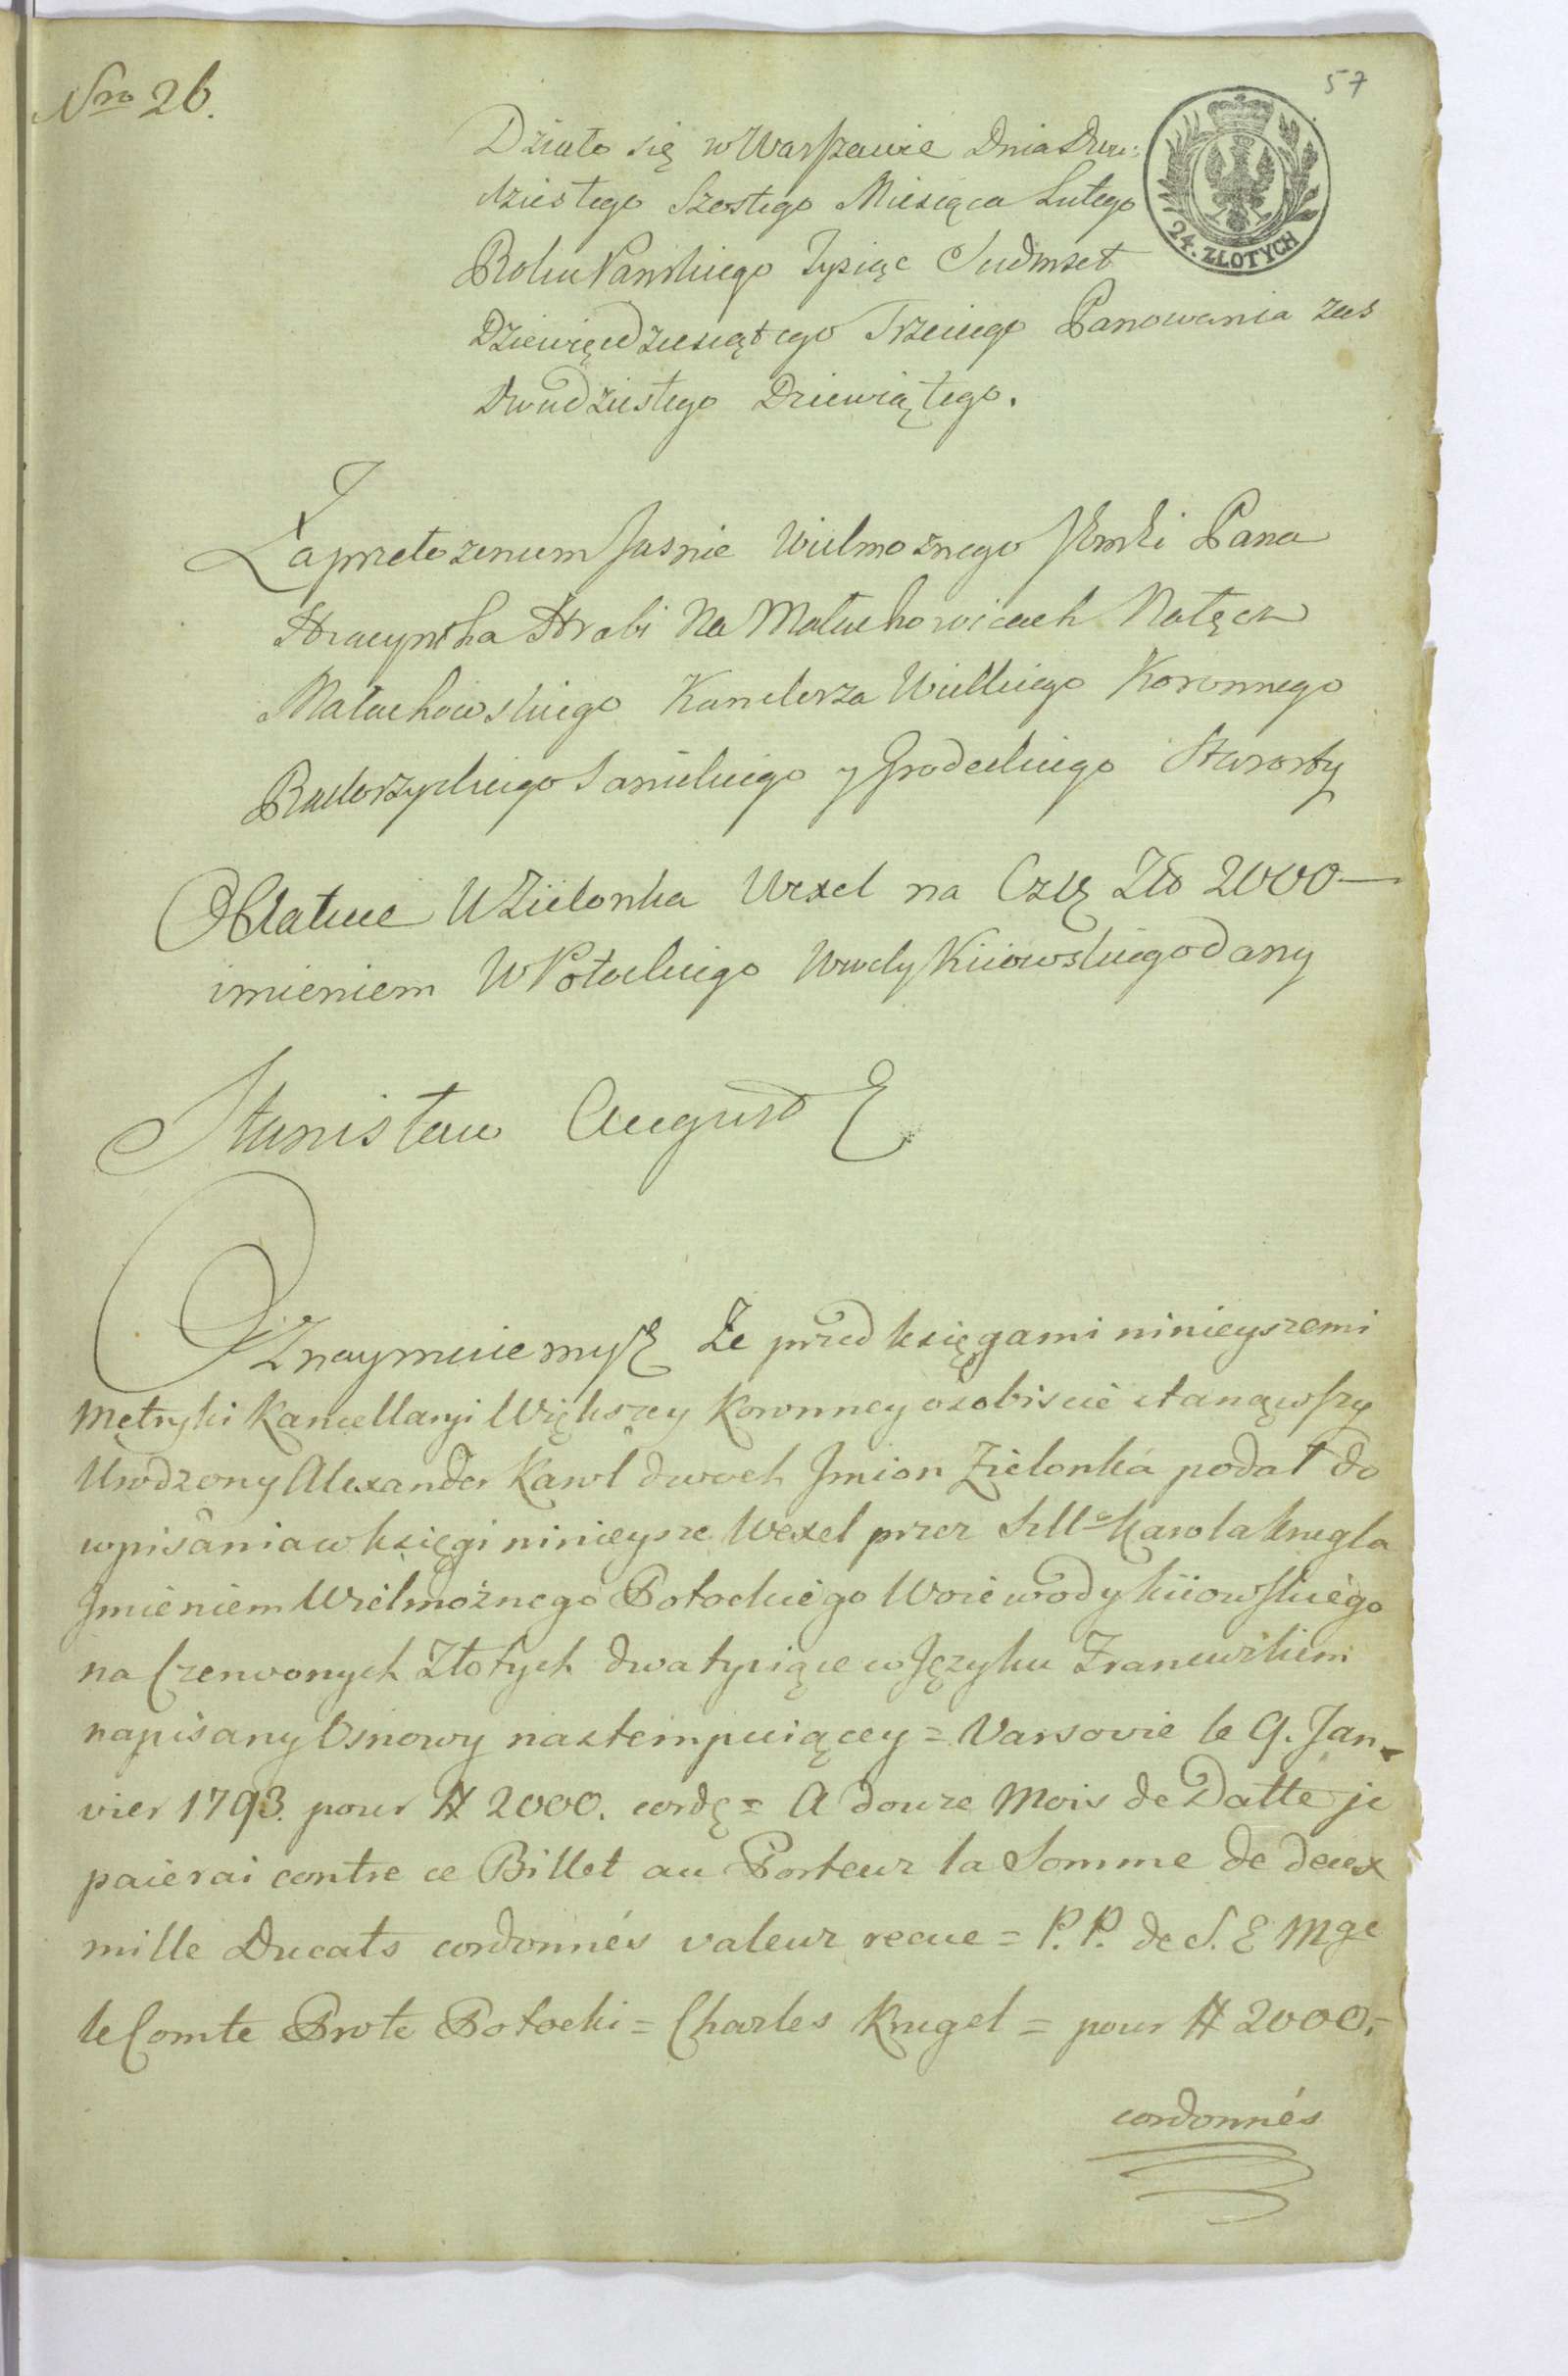 Nro 26.
57
24. ZŁOTYCH
Działo się w Warszawie Dnia Dwu=
dziestego Szostego Miesiąca Lutego
Roku Pańskiego Tysiąc Siedmset
Dziewięćdziesiątego Trzeciego Panowania zas
Dwudziestego Dziewiątego.
Za przełozeniem Jasnie Wielmoznego Pana
Hyacyntha Hrabi Na Małachowicach Nałęcz
Małachowskiego Kanclerza Wielkiego Koronnego
Radoszyckiego Sanickiego y Grodeckiego Starosty
Oblatuie W Zielonka Wexel na Czł Zło 2000—
imieniem W Potockiego Wwdy Kiiowskiego dany
Stanisław August
Oznaymuiemy Ze przed księgami ninieyszemi
Metryki Kancellaryi Większey Koronney osobiscie stanąwszy
Urodzony Alexander Karol dwoch Jmion Zielonka podał do
wpisania w księgi ninieysze Wexel przez Karola Krugla
Jmieniem Wielmożnego Potockiego Woiewody kiiowskiego
na Czerwonych Złotych dwa tysiące w Języku Francuzkiem
napisany Osnowy nastempuiącey = Varsovie le 9. Jan=
vier 1793. pour # 2000. cordę = A douze Mois de Datte je
paierai contre ce Billet au Porteur la Somme de deux
mille Ducats cordonnés valeur recue = P. P. de S. E Mge
le Comte Prote Potocki = Charles Krugel = pour # 2000.=
cordonnés